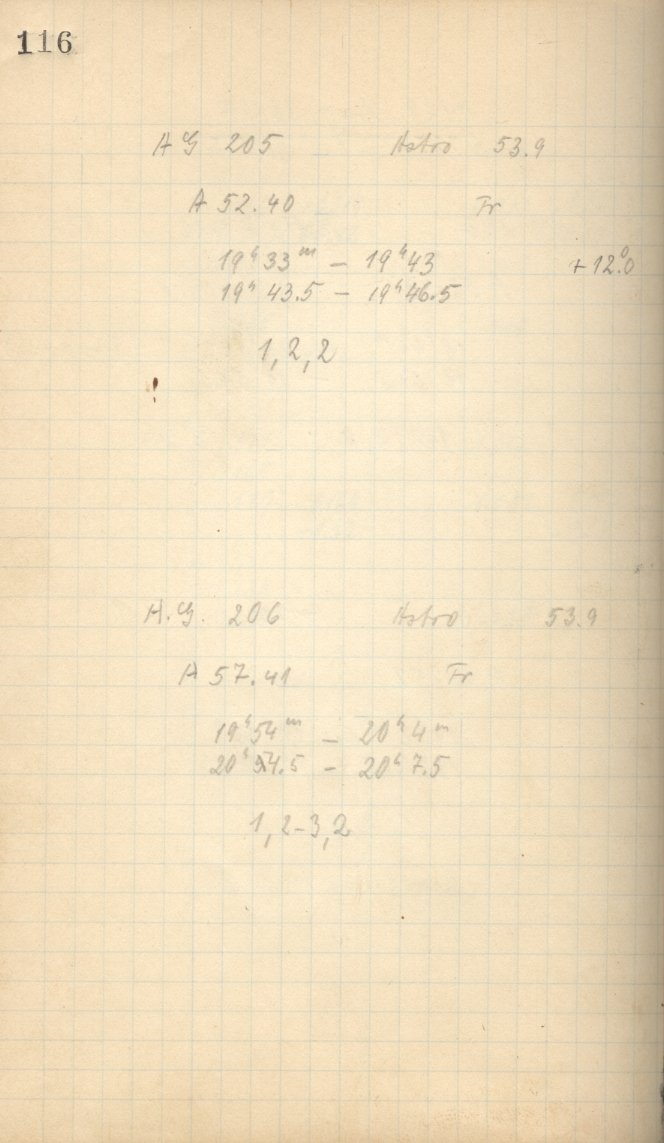 116
AG 205 Astro 53.9
A 52.40 Fr
19ʰ33ᵐ – 19ʰ43 +12.⁰0
19ʰ 43.5 – 19ʰ46.5
1, 2, 2
A.G. 206 Astro 53.9
A 57.41 Fr
19ʰ54ᵐ – 20ʰ4ᵐ
20ʰ 4.5 – 20ʰ 7.5
1, 2-3, 2